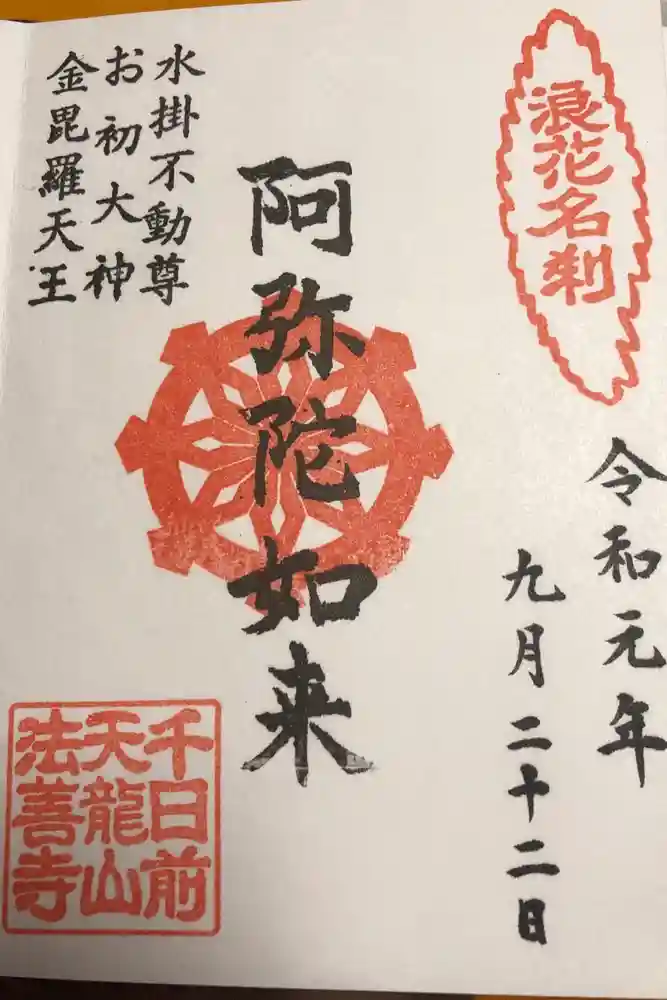 浪花名刹
令和元年
九月二十二日
阿弥陀如来
水掛不動尊
お初大神
金毘羅天王
千日前
天龍山
法善寺